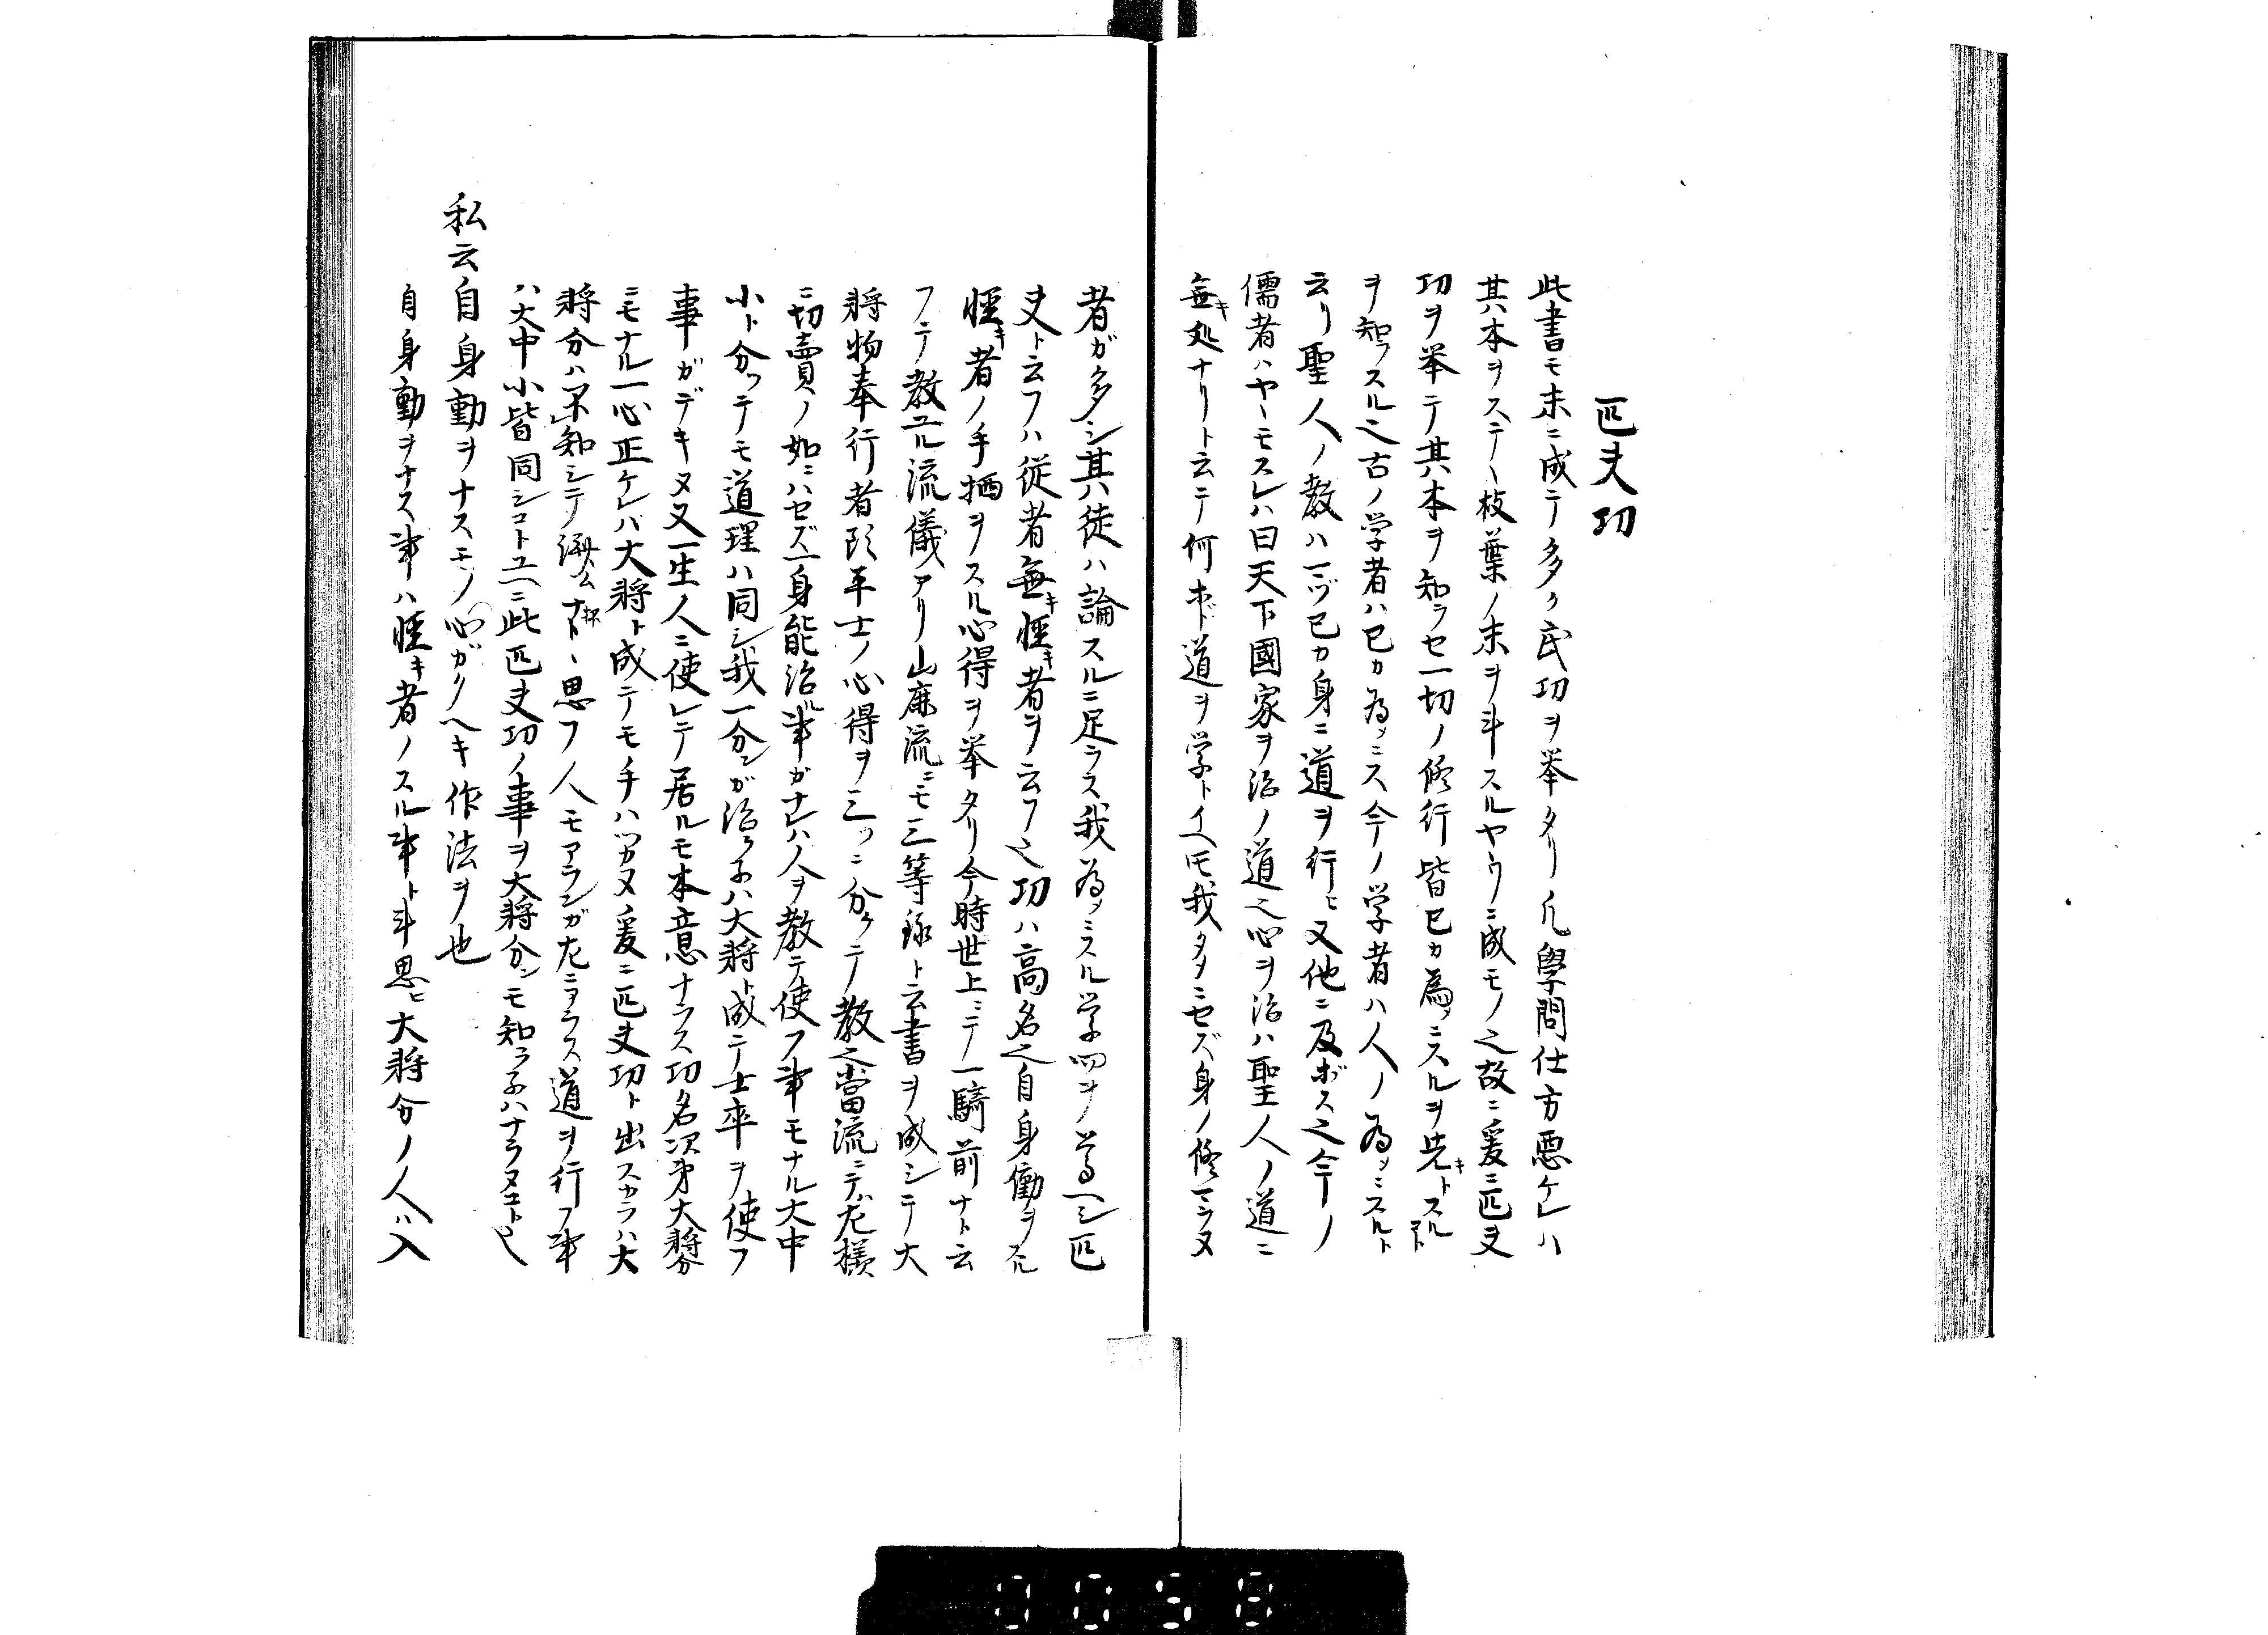 匹夫功
此書モ末ニ成テ多ク民功ヲ挙タリ凡學問仕方悪ケレハ
其本ヲステヽ枝葉ノ末ヲ斗スルヤウニ成モノ也故ニ爰ニ匹夫
功ヲ挙テ其本ヲ知ラセ一切ノ修行皆己カ為ニスルヲ先トスルコト
ヲ知ラスル也古ノ学者ハ己カ為ニス今ノ学者ハ人ノ為ニスルト
云リ聖人ノ教ハ一ツ己カ身ニ道ヲ行ヒ又他ニ及ボス也今ノ
儒者ハヤヽモスレハ曰天下國家ヲ治ノ道也心ヲ治ハ聖人ノ道ニ
無キ処ナリト云テ何ホド道ヲ学トイヘ𪜈我タメニセズ身ノ修ラヌ
者ガ多シ其徒ハ論スルニ足ラス我為ニスル学ヲ尊ヘシ匹
夫ト云フハ従者無キ軽キ者ヲ云フ也功ハ高名也自身働ヲスル
軽キ者ノ手柄ヲスル心得ヲ挙タリ今時世上ニテ一騎前ナト云
フテ教ユル流儀アリ山鹿流ニモ三等録ト云書ヲ成シテ大
将物奉行者頭平士ノ心得ヲ三ツニ分ケテ教也當流ニテハ左様
ニ切賣ノ如ニハセズ一身能治ル事ガナレハ人ヲ教テ使フ事モナル大中
小ト分ツテモ道理ハ同シ我一分ンガ治ラネハ大将ト成テ士卒ヲ使フ
事ガデキヌ又一生人ニ使レテ居ルモ本意ナラス功名次第大将分
ニモナル一心正ケレバ大将ト成テモ手ハツカヌ爰ニ匹夫功ト出スカラハ大
将分ハ不知シテ済ムナドヽ思フ人モアランガ左ニアラス道ヲ行フ事
ハ大中小皆同シコトユヘニ此匹夫功ノ事ヲ大将分ンモ知ラネハナラヌコト也
私云自身動ヲナスモノ心ガクヘキ作法ヲ也
自身動ヲナス事ハ軽キ者ノスル事ト斗思ヒ大将分ノ人ハ入